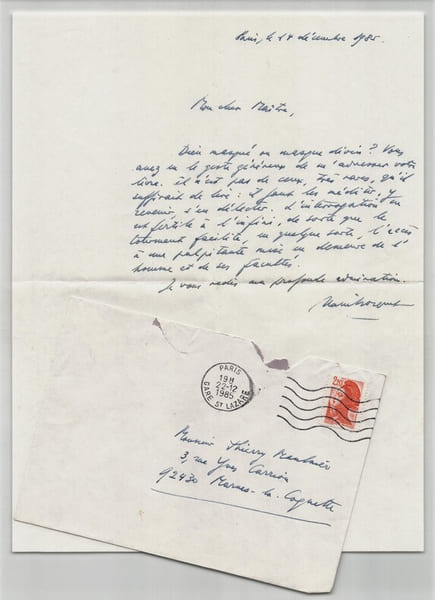 Paris, le 14 décembre 1985.
Mon cher Maître,
Dieu masqué ou masque divin ? Vous
avez eu le geste généreux de m'adresser votre
livre. Il n'est pas de ceux, très rares, qu'il
suffirait de lire : il faut les méditer, y
revenir, s'en délecter. L'interrogation en
est fertile à l'infini, de sorte que le
facilité, en quelque sorte, l'accès
à une palpitante mise en demeure de l'
homme et de ses facultés.
Je vous redis ma profonde admiration.
PARIS
19H
22-12
1985
GARE ST LAZARE
2,20
Monsieur Thierry Maulnier
3, rue Yves Carriou
92430 Marnes-la-Coquette